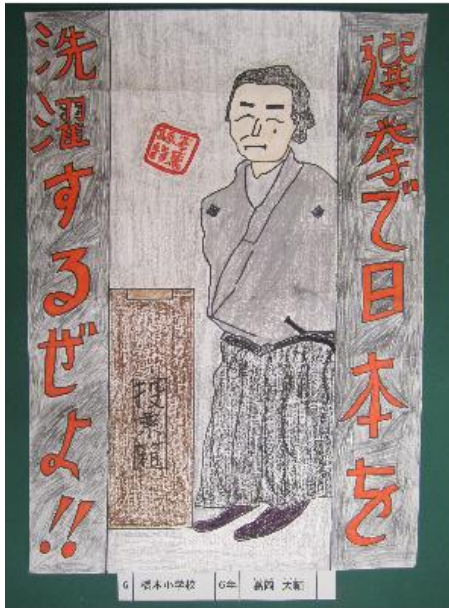 選挙で日本を
洗濯するぜよ!!
投票箱
6 橋本小学校 6年